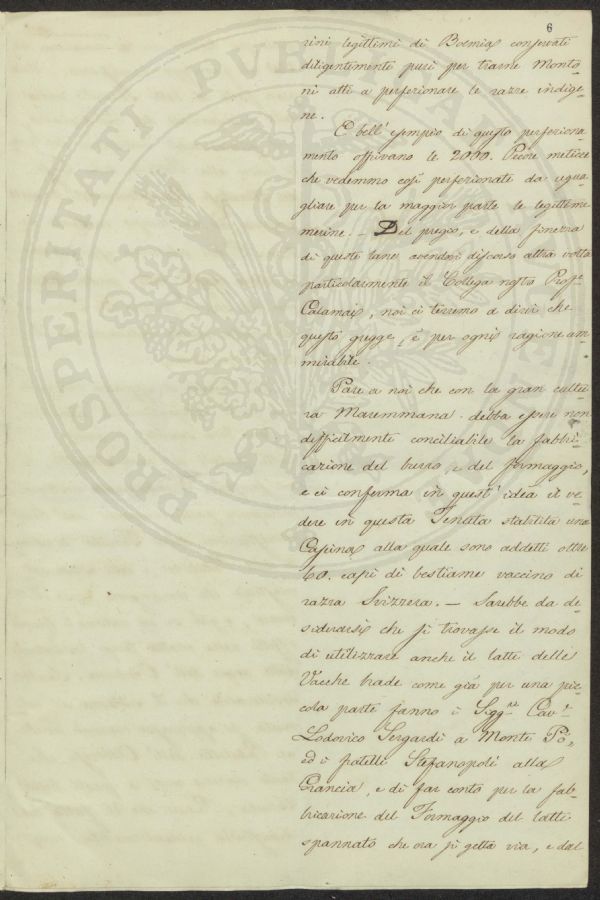 6
rini legittimi di Boemia conservati
diligentemente puri per trarne Monto-
ni atti a perfezionare le razze indige-
ne.
E bell' esempio di questo perfeziona-
mento offrivano le 2000. Pecore meticce
che vedemmo così perfezionate da egua-
gliare per la maggior parte le legittime
merine. — Del pregio, e della finezza
di queste lane avendovi discorso altra volta
particolarmente il Collega nostro Prof.e
Calamai, noi ci terremo a dirvi che
questo gregge è per ogni ragione am-
mirabile.
Pare a noi che con la gran cultu-
ra Maremmana debba essere non
difficilmente conciliabile la fabbri-
cazione del burro, e del formaggio,
e ci conferma in quest' idea il ve-
dere in questa Tenuta stabilita una
Cascina alla quale sono addetti oltre
60. capi di bestiame vaccino di
razza Svizzera. — Sarebbe da de-
siderarsi che si trovasse il modo
di utilizzare anche il latte delle
Vacche brade come già per una pic-
cola parte fanno i Sigg.ri Cav.r
Lodovico Sergardi a Monte Pò,
ed i fratelli Stefanopoli alla
Grancia, e di far conto per la fab-
bricazione del Formaggio del latte
spannato che ora si getta via, e dal
PROSPERITATI PVBLICAE